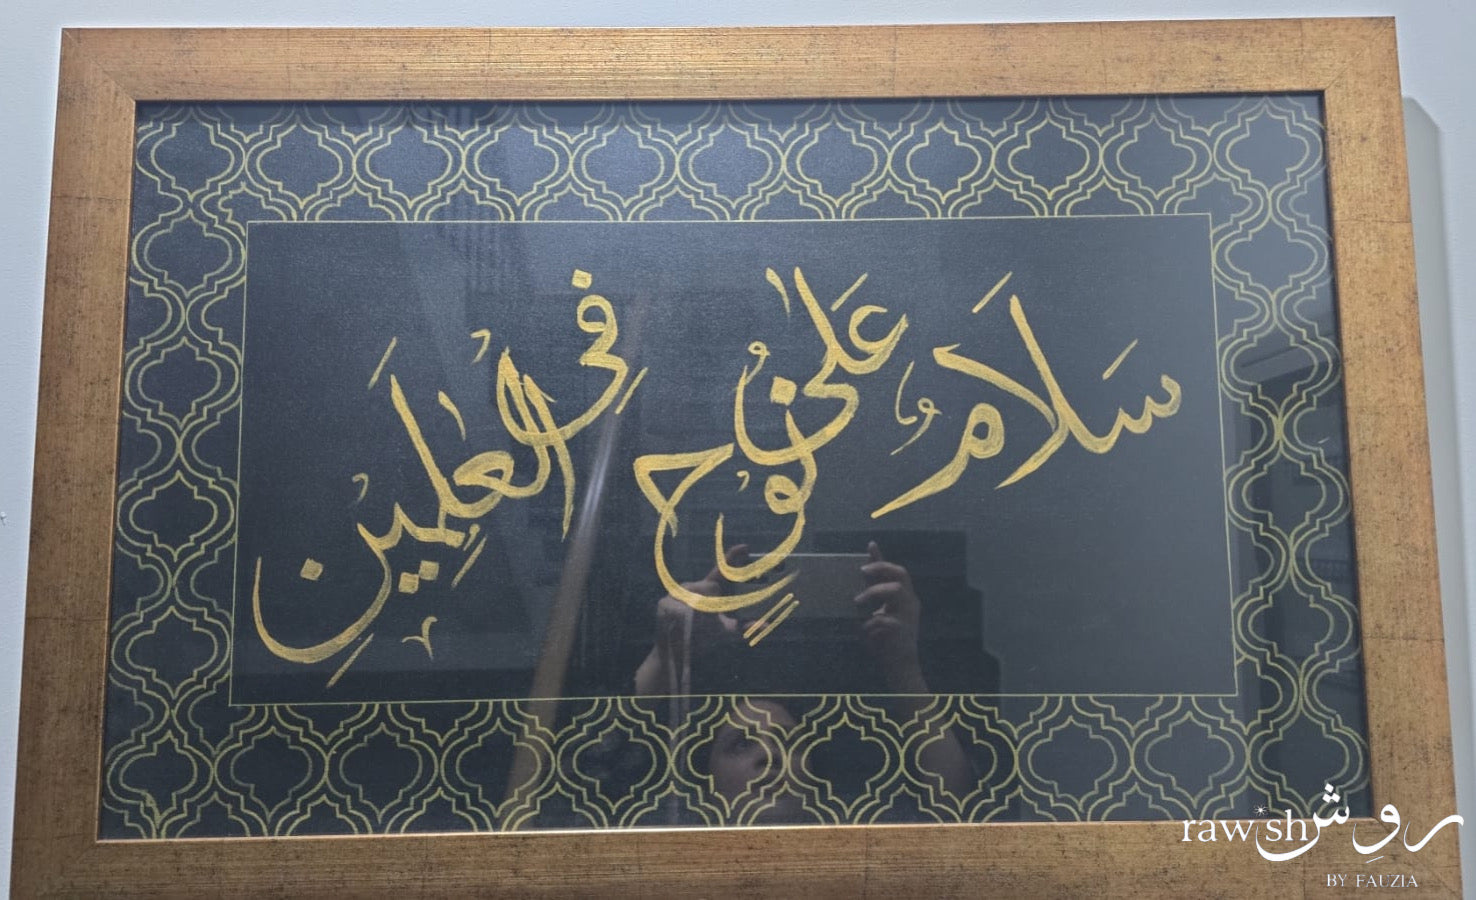 سَلَامٌ عَلَىٰ نُوحٍ فِي الْعَٰلَمِينَ
rawish روِش
BY FAUZIA